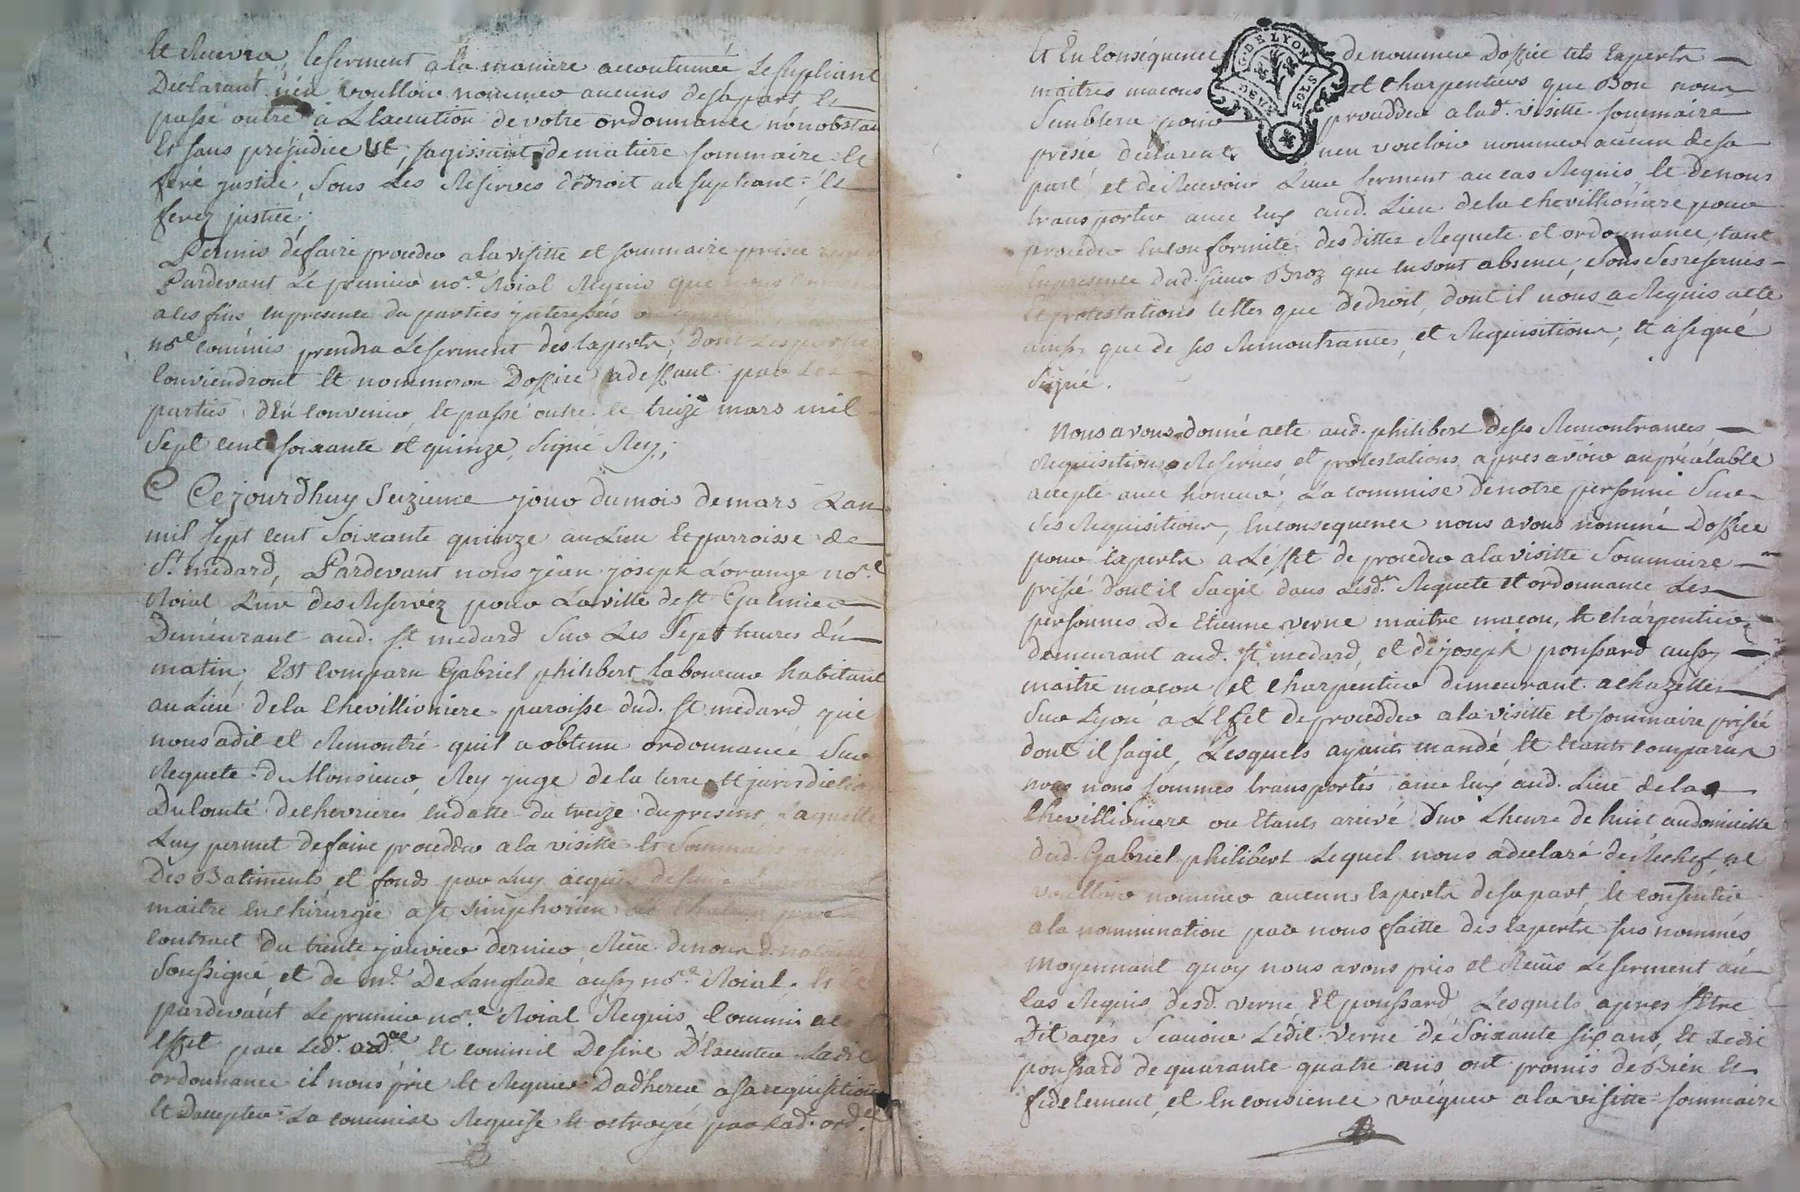 et recevra, le serment a la maniere accoutumée le supliant
Declarant n'en voulloir nommer aucuns de sa part, et
passé outre a L'execution de votre ordonnance nonobstan
Et sans prejudice Et, s'agissant de matiere sommaire et
feré justice, sous Les Reserves de droit au supliant; et
ferez justice;
Permis de faire proceder a la visitte et sommaire prisée
Pardevant Le premier no.re Roial Requis que
a ces fins en presence du parties interessés
no.re commis prendra Le serment des Experts, Dont Les parties
conviendront Et nommeron D'office a deffaut par Les
parties D'En convenir, et passé outre le treize mars mil
sept cent soixante et quinze, signé Rey;
Ce jourd'huy seizieme jour du mois de mars L'an
mil sept cent soixante quinze au Lieu Et parroisse de
St. medard, Pardevant nous jean joseph Lorange no.re
Roial L'un des Reservéz pour La ville de st Galmier
Demeurant aud. st medard sur Les sept heures du
matin, Est comparu Gabriel philibert laboureur habitant
au Lieu de la Chevillioniere paroisse dud. st medard qui
nous a dit et Remontré qu'il a obtenu ordonnance sur
Requete de Monsieur Rey juge de la terre et jurisdiction
Du Comté de chevrieres en datte du treize du present, Laquelle
Luy permet de faire procedder a la visitte et sommaire
Des Batiments et fonds par Luy acquis de
maitre en chirurgie a st simphorien par
contract du trente janvier dernier, Reçu de nous
soussigné, et de m.e De Langlade aussy no.re Roial. Et
pardevant Le premier no.re Roial Requis Commis a cet
effet par led. Et comme il Desire D'executer Ladite
ordonnance il nous prie et Requiers D'adherer a sa requisition
Et D'accepter La commise Requise Et octroyée par lad. ord.ce
Et En Conséquence de nommer D'office tels Experts
maitres macons et Charpentiers que Bon nous
Semblera pour procedder a lad. visitte sommaire
prisée declarent n'en vouloir nommer aucun de sa
part et de Recevoir Leur serment au cas Requis, et de nous
transporter avec Eux aud. Lieu de la Chevillioniere pour
proceder en conformité des dittes Requete et ordonnance, tant
En presence dud. sieur Broz que en sont absence, sous ses reserves
Et protestations telles que de droit, dont il nous a Requis acte
ainsy que de ses Remontrances, et Requisitions, et a signé
signé.
Nous avons donné acte aud. philibert de ses Remontrances
Requisitions Reserves et protestations, apres avoir au préalable
accepté avec honneur La commise de notre personne Sur
Ses Requisitions, En consequence nous avons nommé D'office
pour Experts a L'effet de proceder a la visitte Sommaire
prisée dont il s'agit dans Lesd. Requete et ordonnance Les
personnes De Etienne verne maitre macon, et charpentier
demeurant aud. st medard, et de joseph poussard aussy
maitre macon et charpentier demeurant a chazelles
sur Lyon a L'effet de procedder a la visitte et sommaire prisée
dont il s'agit, Lesquels ayants mandé et Etants comparus
nous nous sommes transportés avec Eux aud. Lieu de la
Chevillioniere ou Etants arrivé sur L'heure de huit, au domicille
dud. Gabriel philibert Lequel nous a declaré de Rechef ne
voulloir nommer aucuns Experts de sa part, Et consentir
a la nommination par nous faitte des Experts sus nommés,
moyennant quoy nous avons pris et Reçus Le serment au
cas Requis desd. verne, Et poussard Lesquels apres s'etre
Dit agés Scavoir Ledit verne de soixante six ans, Et Ledit
poussard de quarante quatre ans ont promis de Bien Et
fidelement, et En conscience vacquer a la visitte sommaire
G. DE LYON
DEUX SOLS